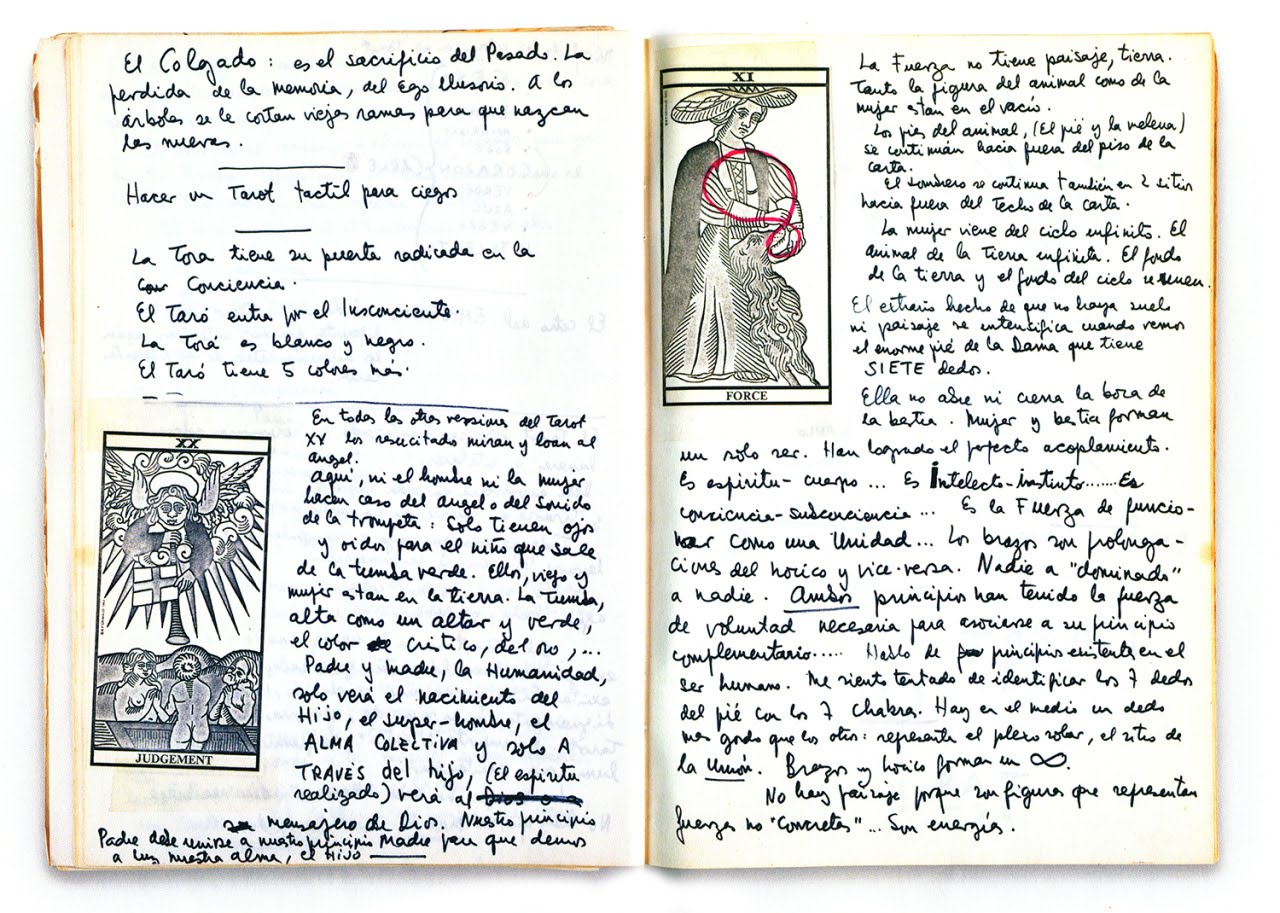 El Colgado: es el sacrificio del Pasado. La
perdida de la memoria, del Ego Ilusorio. A los
árboles se le cortan viejas ramas para que nazcan
las nuevas.
Hacer un Tarot tactil para ciegos
La Tora tiene su puerta radicada en la
con Conciencia.
El Taró entra por el Insconciente.
La Torá es blanco y negro.
El Taró tiene 5 colores más.
XX
JUDGEMENT
En todas las otras versiones del Tarot
XX los resucitado miran y loan al
angel.
Aquí, ni el hombre ni la mujer
hacen caso del angel o del sonido
de la trompeta: Solo tienen ojos
y oidos para el niño que sale
de la tumba verde. Ellos, viejo y
mujer estan en la tierra. La Tumba,
alta como un altar y verde,
el color de Cristico, del oro, ...
Padre y madre, la Humanidad,
solo verá el nacimiento del
Hijo, el super-hombre, el
ALMA COLECTIVA y solo A
TRAVES del hijo, (El espiritu
realizado) verá al Dios o a
mensajero de Dios. Nuestro principio
Padre debe unirse a nuestro principio Madre para que demos
a luz nuestra alma, el Hijo
XI
FORCE
La Fuerza no tiene paisaje, tierra.
Tanto la figura del animal como de la
mujer estan en el vacío.
Los pies del animal, (El pié y la melena)
se continuán hacia fuera del piso de la
carta.
El sombrero se continua también en 2 sitios
hacia fuera del Techo de la carta.
La mujer viene del cielo infinito. El
animal de la Tierra infinita. El fondo
de la tierra y el fondo del cielo se unen.
El extraño hecho de que no haya suelo
ni paisaje se intensifica cuando vemos
el enorme pié de la Dama que tiene
SIETE dedos.
Ella no abre ni cierra la boca de
la bestia. Mujer y bestia forman
un solo ser. Han logrado el perfecto acoplamiento.
Es espíritu-cuerpo ... Es Intelecto-instinto....... Es
conciencia-subconciencia ... Es la Fuerza de funcio-
nar como una Unidad ... Los brazos son prolonga-
ciones del hocico y vice-versa. Nadie a "dominado"
a nadie. Ambos principios han tenido la fuerza
de voluntad necesaria para asociarse a su principio
complementario..... Hablo de principios existente en el
ser humano. Me siento tentado de identificar los 7 dedos
del pié con los 7 chakra. Hay en el medio un dedo
mas gordo que los otros: representa el plexo solar, el sitio de
la Unión. Brazos y hocico forman un ∞.
No hay paisaje porque son figuras que representan
fuerzas no "concretas" ... Son energías.